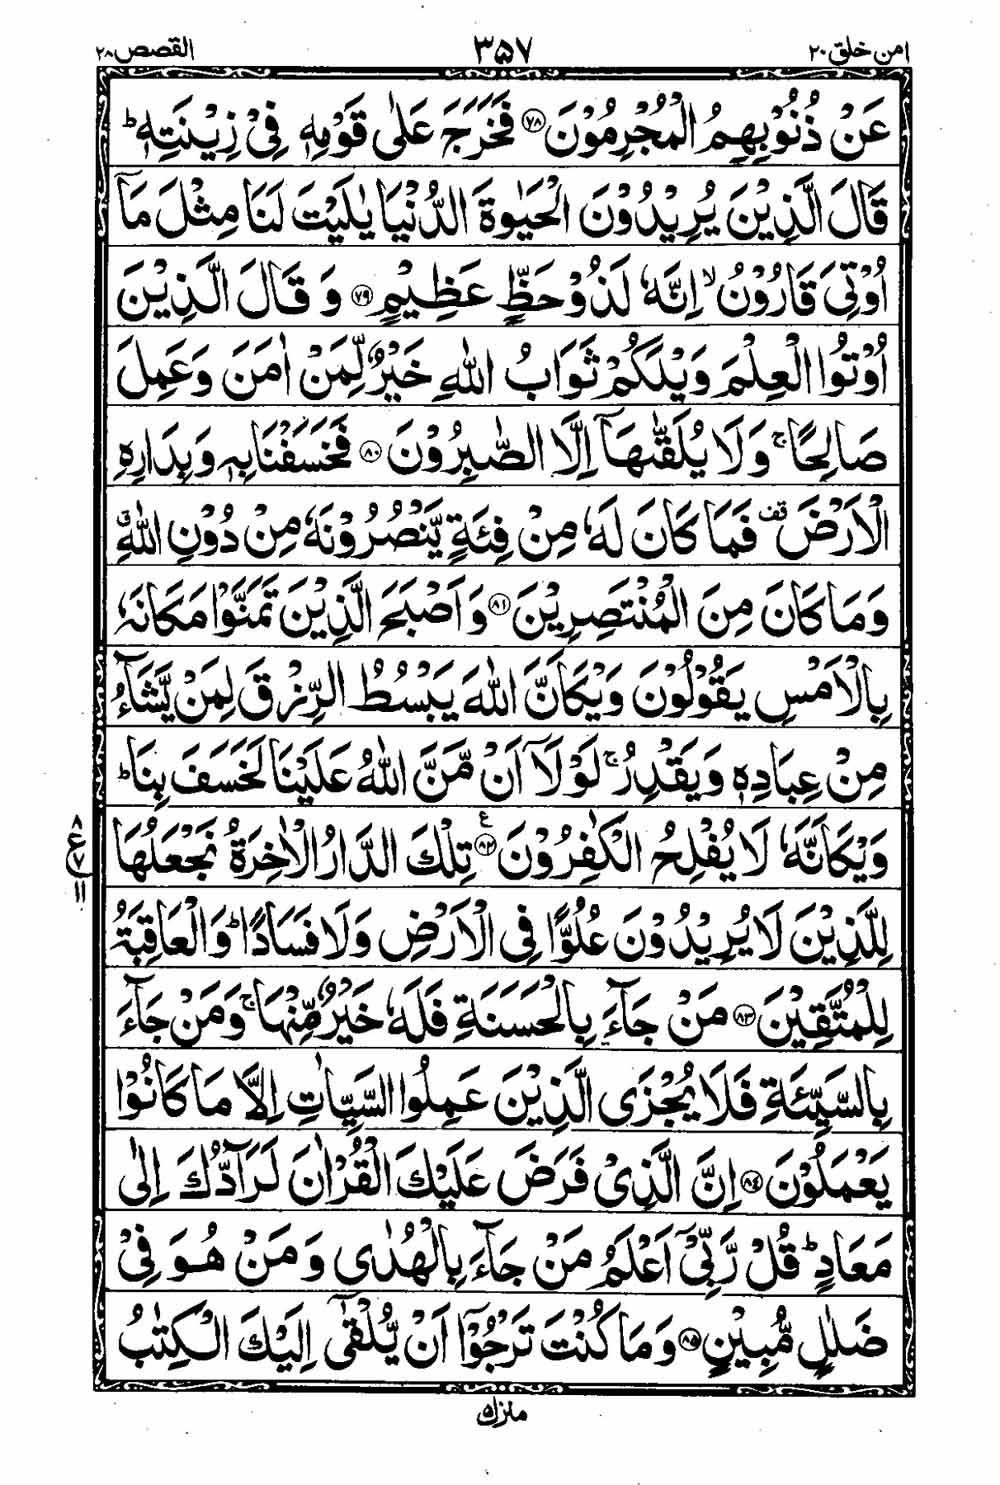 امن خلق ٢٠
٣٥٧
القصص ٢٨
عَنْ ذُنُوْبِهِمُ الْمُجْرِمُوْنَ ﴿٧٨﴾ فَخَرَجَ عَلٰى قَوْمِهٖ فِىْ زِيْنَتِهٖؕ
قَالَ الَّذِيْنَ يُرِيْدُوْنَ الْحَيٰوةَ الدُّنْيَا يٰلَيْتَ لَنَا مِثْلَ مَاۤ
اُوْتِىَ قَارُوْنُۙ اِنَّهٗ لَذُوْ حَظٍّ عَظِيْمٍ ﴿٧٩﴾ وَ قَالَ الَّذِيْنَ
اُوْتُوا الْعِلْمَ وَيْلَكُمْ ثَوَابُ اللّٰهِ خَيْرٌ لِّمَنْ اٰمَنَ وَعَمِلَ
صَالِحًاۚ وَلَا يُلَقّٰىهَاۤ اِلَّا الصّٰبِرُوْنَ ﴿٨٠﴾ فَخَسَفْنَا بِهٖ وَبِدَارِهِ
الْاَرْضَ قف فَمَا كَانَ لَهٗ مِنْ فِئَةٍ يَّنْصُرُوْنَهٗ مِنْ دُوْنِ اللّٰهِؗ
وَمَا كَانَ مِنَ الْمُنْتَصِرِيْنَ ﴿٨١﴾ وَاَصْبَحَ الَّذِيْنَ تَمَنَّوْا مَكَانَهٗ
بِالْاَمْسِ يَقُوْلُوْنَ وَيْكَاَنَّ اللّٰهَ يَبْسُطُ الرِّزْقَ لِمَنْ يَّشَآءُ
مِنْ عِبَادِهٖ وَيَقْدِرُۚ لَوْلَاۤ اَنْ مَّنَّ اللّٰهُ عَلَيْنَا لَخَسَفَ بِنَاؕ
وَيْكَاَنَّهٗ لَا يُفْلِحُ الْكٰفِرُوْنَ ﴿٨٢﴾ ع تِلْكَ الدَّارُ الْاٰخِرَةُ نَجْعَلُهَا
٨
ع ٧
١١
لِلَّذِيْنَ لَا يُرِيْدُوْنَ عُلُوًّا فِى الْاَرْضِ وَلَا فَسَادًاؕ وَالْعَاقِبَةُ
لِلْمُتَّقِيْنَ ﴿٨٣﴾ مَنْ جَآءَ بِالْحَسَنَةِ فَلَهٗ خَيْرٌ مِّنْهَاۚ وَمَنْ جَآءَ
بِالسَّيِّئَةِ فَلَا يُجْزَى الَّذِيْنَ عَمِلُوا السَّيِّاٰتِ اِلَّا مَا كَانُوْا
يَعْمَلُوْنَ ﴿٨٤﴾ اِنَّ الَّذِىْ فَرَضَ عَلَيْكَ الْقُرْاٰنَ لَرَآدُّكَ اِلٰى
مَعَادٍؕ قُلْ رَّبِّىْۤ اَعْلَمُ مَنْ جَآءَ بِالْهُدٰى وَمَنْ هُوَ فِىْ
ضَلٰلٍ مُّبِيْنٍ ﴿٨٥﴾ وَمَا كُنْتَ تَرْجُوْۤا اَنْ يُّلْقٰٓى اِلَيْكَ الْكِتٰبُ
منزل ٥